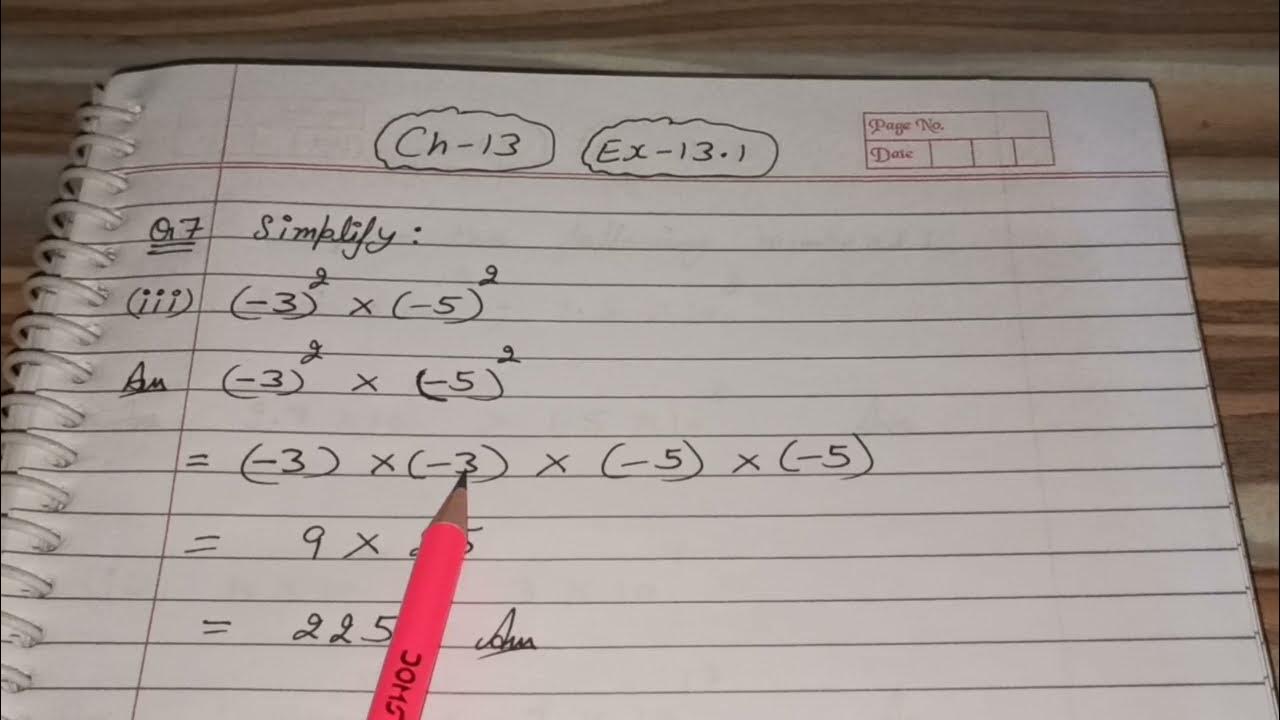 Ch-13 Ex-13.1
Page No.
Date
Q7 Simplify:
(iii) (-3)² × (-5)²
Ans (-3)² × (-5)²
= (-3) × (-3) × (-5) × (-5)
= 9 ×
= 225 Ans
JOMS